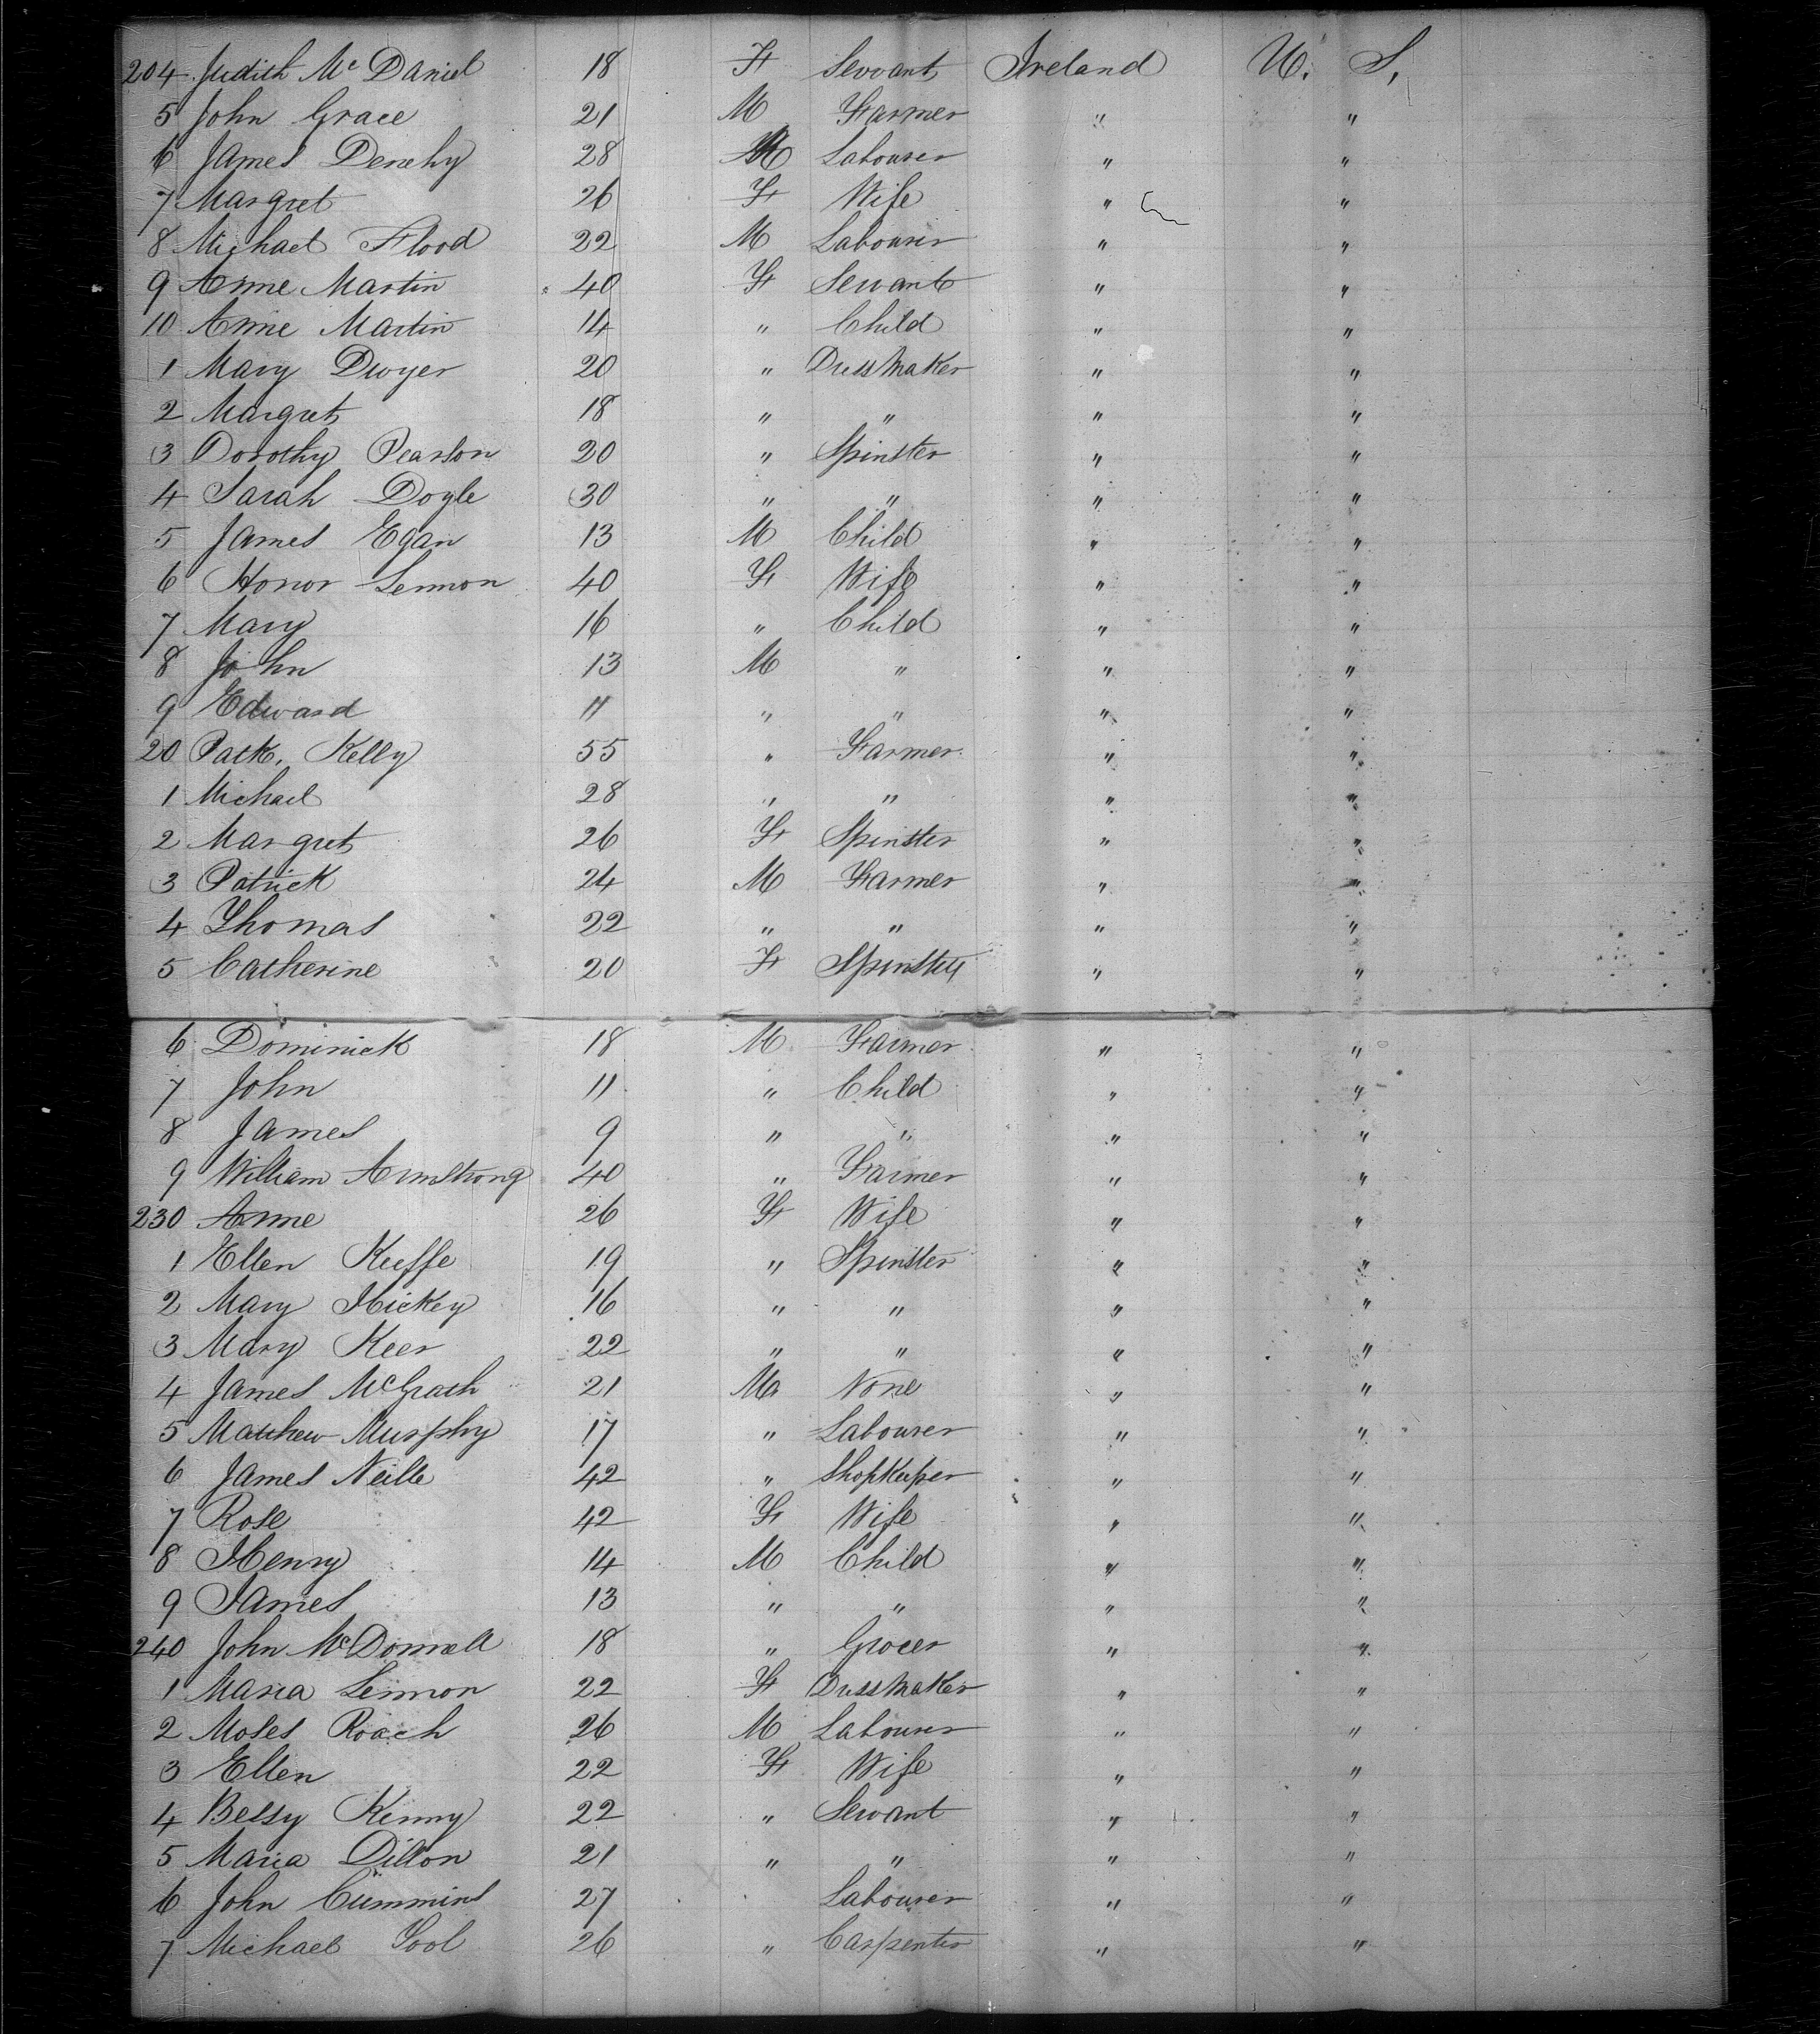 204 Judith Mc Daniel 18 F Servant Ireland U. S,
5 John Grace 21 M Farmer " "
6 James Denehy 28 M Labourer " "
7 Margret 26 F Wife " "
8 Michael Flood 22 M Labourer " "
9 Anne Martin 40 F Servant " "
10 Anne Martin 14 " Child " "
1 Mary Dwyer 20 " DressMaker " "
2 Margret 18 " " " "
3 Dorothy Pearson 20 " Spinster " "
4 Sarah Doyle 30 " " " "
5 James Egan 13 M Child " "
6 Honor Lennon 40 F Wife " "
7 Mary 16 " Child " "
8 John 13 M " " "
9 Edward 11 " " " "
20 Patk. Kelly 55 " Farmer " "
1 Michael 28 " " " "
2 Margret 26 F Spinster " "
3 Patrick 24 M Farmer " "
4 Thomas 22 " " " "
5 Catherine 20 F Spinster " "
6 Dominick 18 M Farmer " "
7 John 11 " Child " "
8 James 9 " " " "
9 William Armstrong 40 " Farmer " "
230 Anne 26 F Wife " "
1 Ellen Keeffe 19 " Spinster " "
2 Mary Hickey 16 " " " "
3 Mary Keer 22 " " " "
4 James McGrath 21 Ma None " "
5 Mathew Murphy 17 " Labourer " "
6 James Neille 42 " ShopKeeper " "
7 Rose 42 F Wife " "
8 Henry 14 M Child " "
9 James 13 " " " "
240 John McDonnell 18 " Grocer " "
1 Maria Lennon 22 F DressMaker " "
2 Moses Roach 26 M Labourer " "
3 Ellen 22 F Wife " "
4 Bessy Kenny 22 " Servant " "
5 Maria Dillon 21 " " " "
6 John Cummins 27 Labourer " "
7 Michael 26 " Carpenter " "